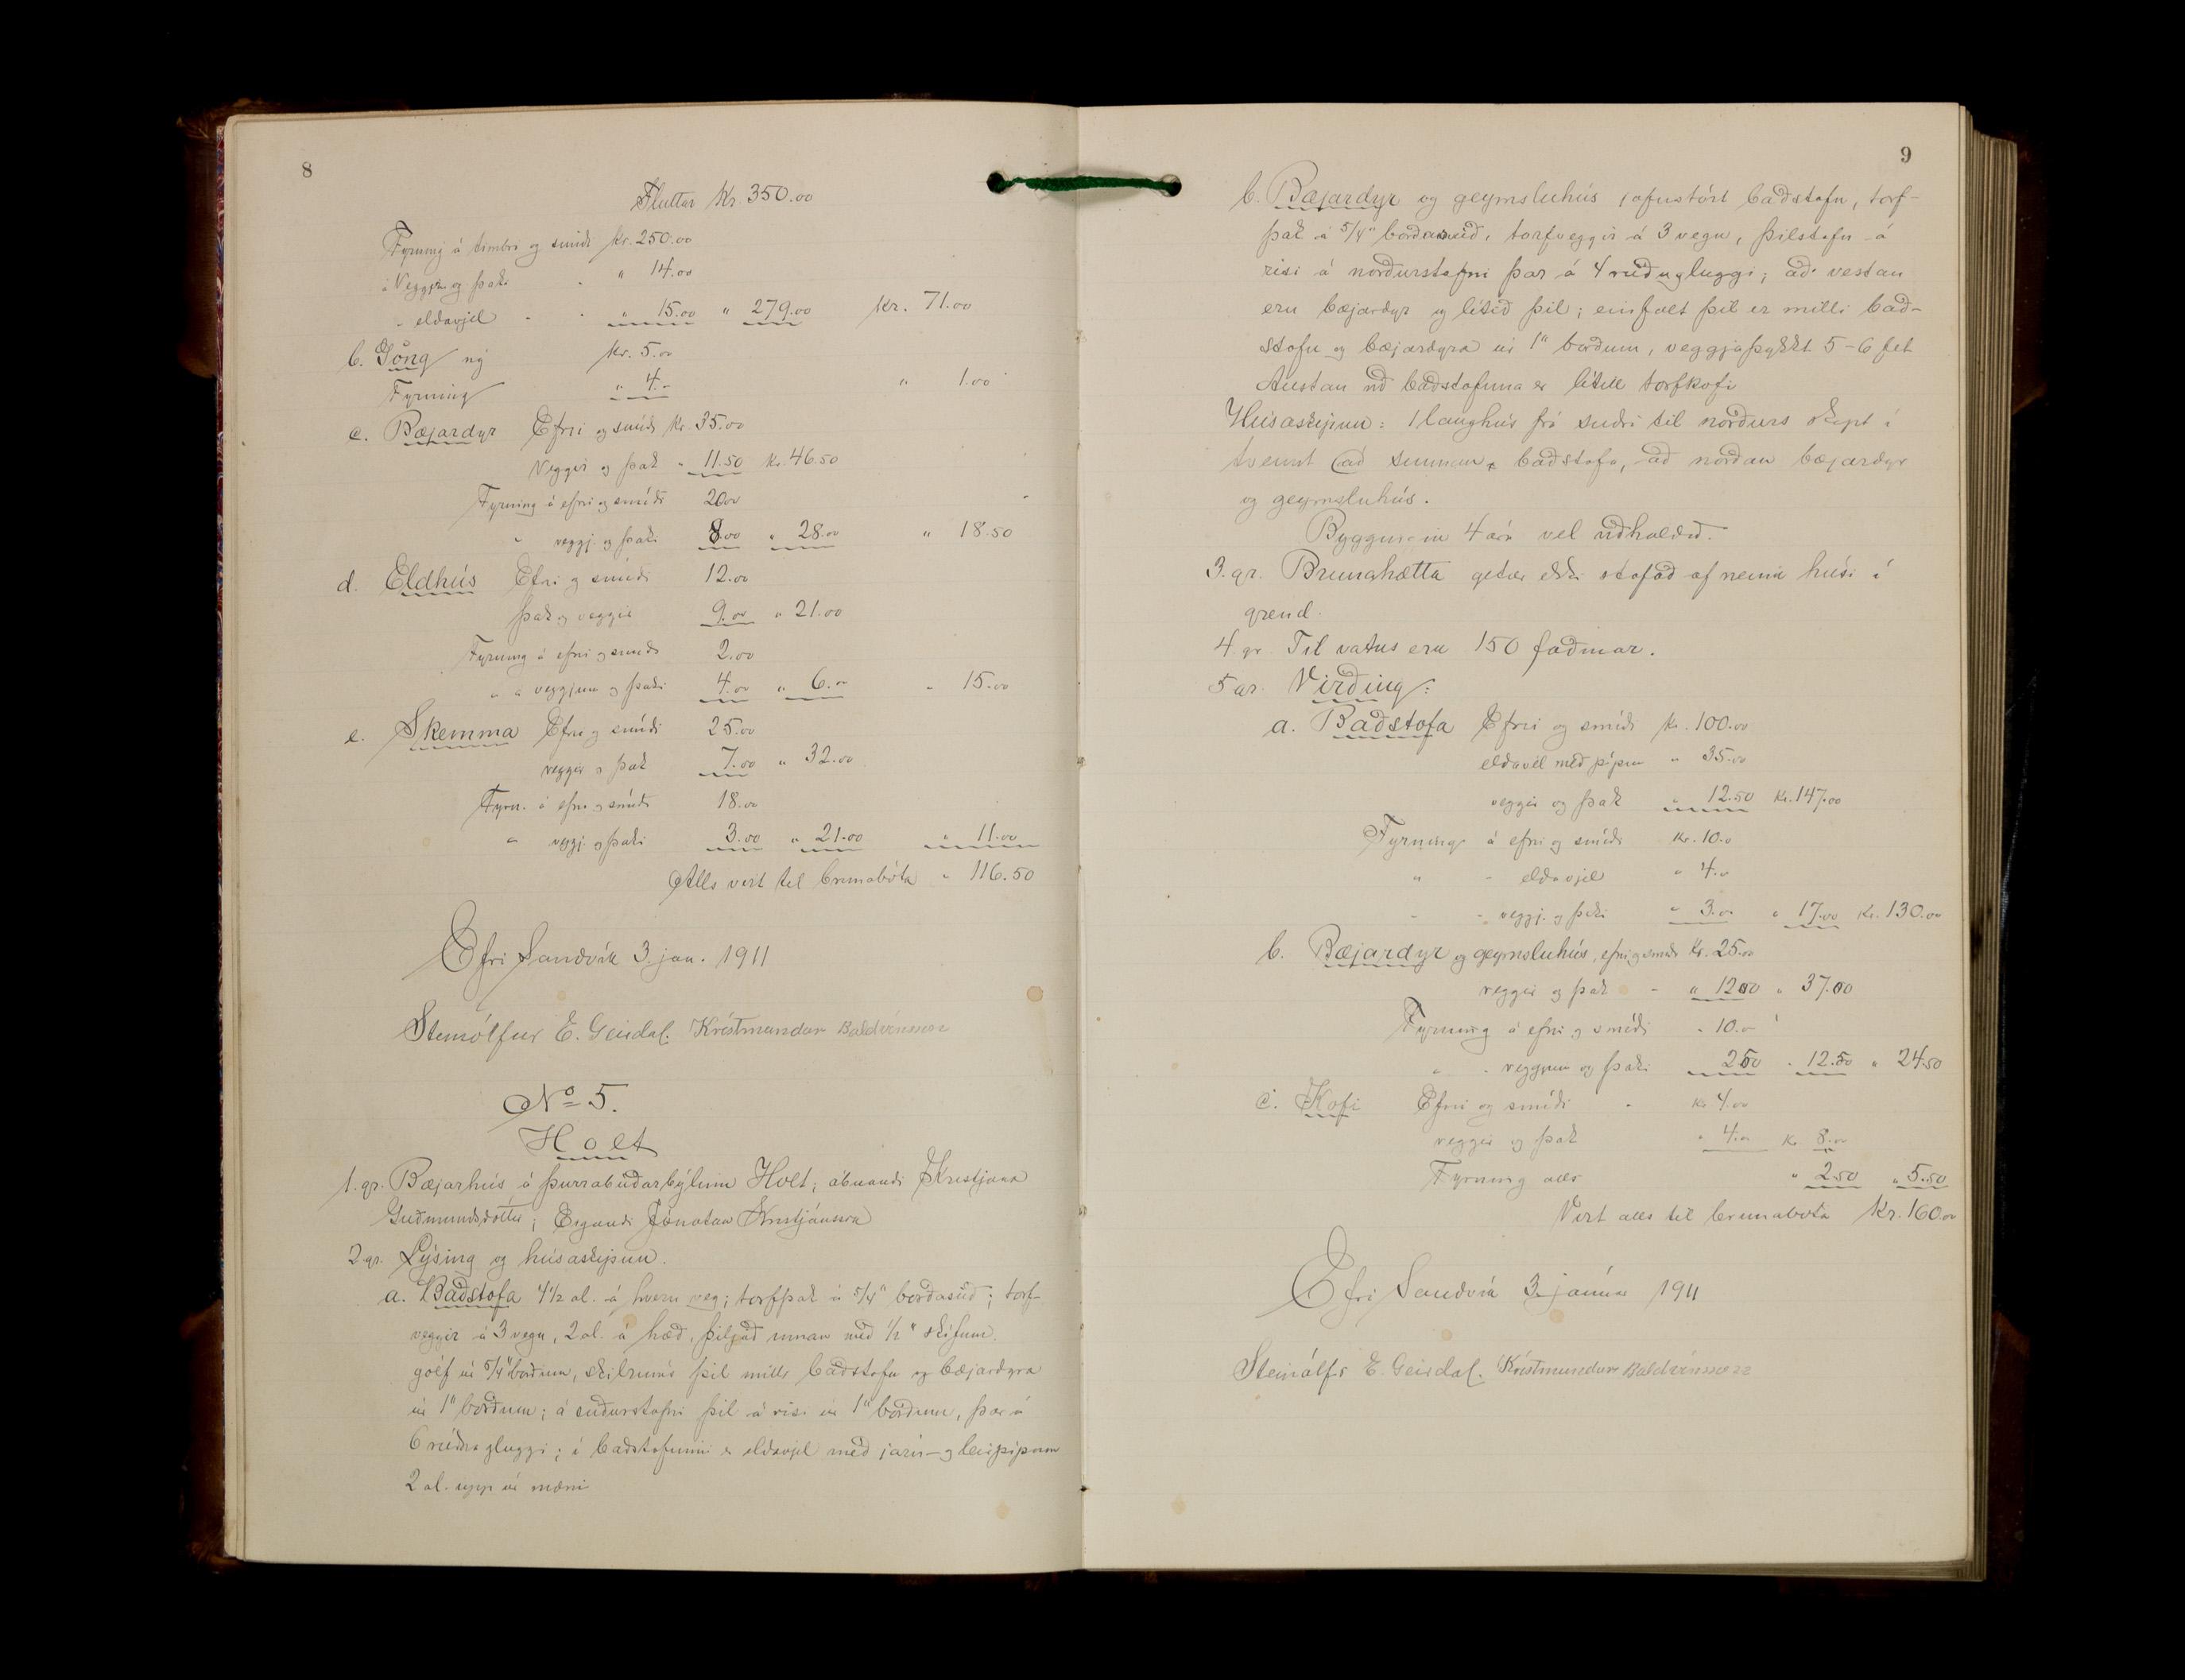 8
Fluttar Kr. 350.00
Fyrning á timbri og smíði Kr. 250.00
á Veggjum og þaki " 14.00
- eldavjel - - " 15.00 " 279.00 Kr. 71.00
b. Göng ný Kr. 5.00
Fyrning " 4.- " 1.00
c. Bæjardyr Efni og smíði Kr. 35.00
Veggir og þak " 11.50 Kr. 46.50
Fyrning á efni og smíði 20.00
" veggj. og þaki 8.00 " 28.00 " 18.50
d. Eldhús Efni og smíði 12.00
Þak og veggir 9.00 " 21.00
Fyrning á efni og smíði 2.00
" á veggjum og þaki 4.00 " 6.00 " 15.00
e. Skemma Efni og smíði 25.00
veggir og þak 7.00 " 32.00
Fyrn. á efni og smíði 18.00
" veggj. og þaki 3.00 " 21.00 " 11.00
Alls virt til brunabóta " 116.50
Efri Sandvík 3. jan. 1911
Steinólfur E. Geirdal. Kristmundur Baldvinsson
No 5.
Holt
1. gr. Bæjarhús á þurrabúðarbýlinu Holt; ábúandi Kristjana
Guðmundsdóttir; Eigandi Jónatan Kristjánsson
2 gr. Lýsing og húsaskipun.
a. Baðstofa 4 1/2 al. á hvern veg; torfþak á 5/4" borðasúð; torf-
veggir á 3 vegu, 2 al. á hæð, þiljað innan með 1/2" skífum.
gólf úr 5/4" borðum, skilrúms þil milli baðstofu og bæjardyra
úr 1" borðum; á suðurstafni þil á risi úr 1" borðum, þar á
6 rúðu gluggi; í baðstofunni er eldavjel með járn- og leirpípum
2 al. upp úr mæni
9
b. Bæjardyr og geymsluhús jafnstórt baðstofu, torf-
þak á 5/4" borðasúð, torfveggir á 3 vegu, þilstafn á
risi á norðurstafni þar á 4 rúðu gluggi; að vestan
eru bæjardyr og lítið þil; einfalt þil er milli bað-
stofu og bæjardyra úr 1" borðum, veggjaþykkt 5-6 fet
Austan við baðstofuna er lítill torfkofi
Húsaskipun: 1 langhús frá suðri til norðurs skipt í
tvennt að sunnan, baðstofa, að norðan bæjardyr
og geymsluhús.
Byggingin 4 ára vel viðhaldið.
3. gr. Brunahætta getur ekki stafað af neinu húsi í
grend.
4. gr. Til vatns eru 150 faðmar.
5 gr. Virðing:
a. Baðstofa Efni og smíði Kr. 100.00
eldavél með pípum " 35.00
veggir og þak " 12.50 Kr. 147.00
Fyrning á efni og smíði Kr. 10.0
" - eldavjel " 4.0
- - veggj. og þaki " 3.00 " 17.00 Kr. 130.00
b. Bæjardyr og geymsluhús, efni og smíði Kr. 25.00
veggir og þak - " 12.00 " 37.00
Fyrning á efni og smíði " 10.00
" - veggjum og þaki 2.50 " 12.50 " 24.50
c. Kofi Efni og smíði - Kr 4.00
veggir og þak " 4.00 Kr. 8.00
Fyrning alls " 2.50 " 5.50
Virt alls til brunabóta Kr. 160.00
Efri Sandvík 3. janúar 1911
Steinólfur E. Geirdal. Kristmundur Baldvinsson